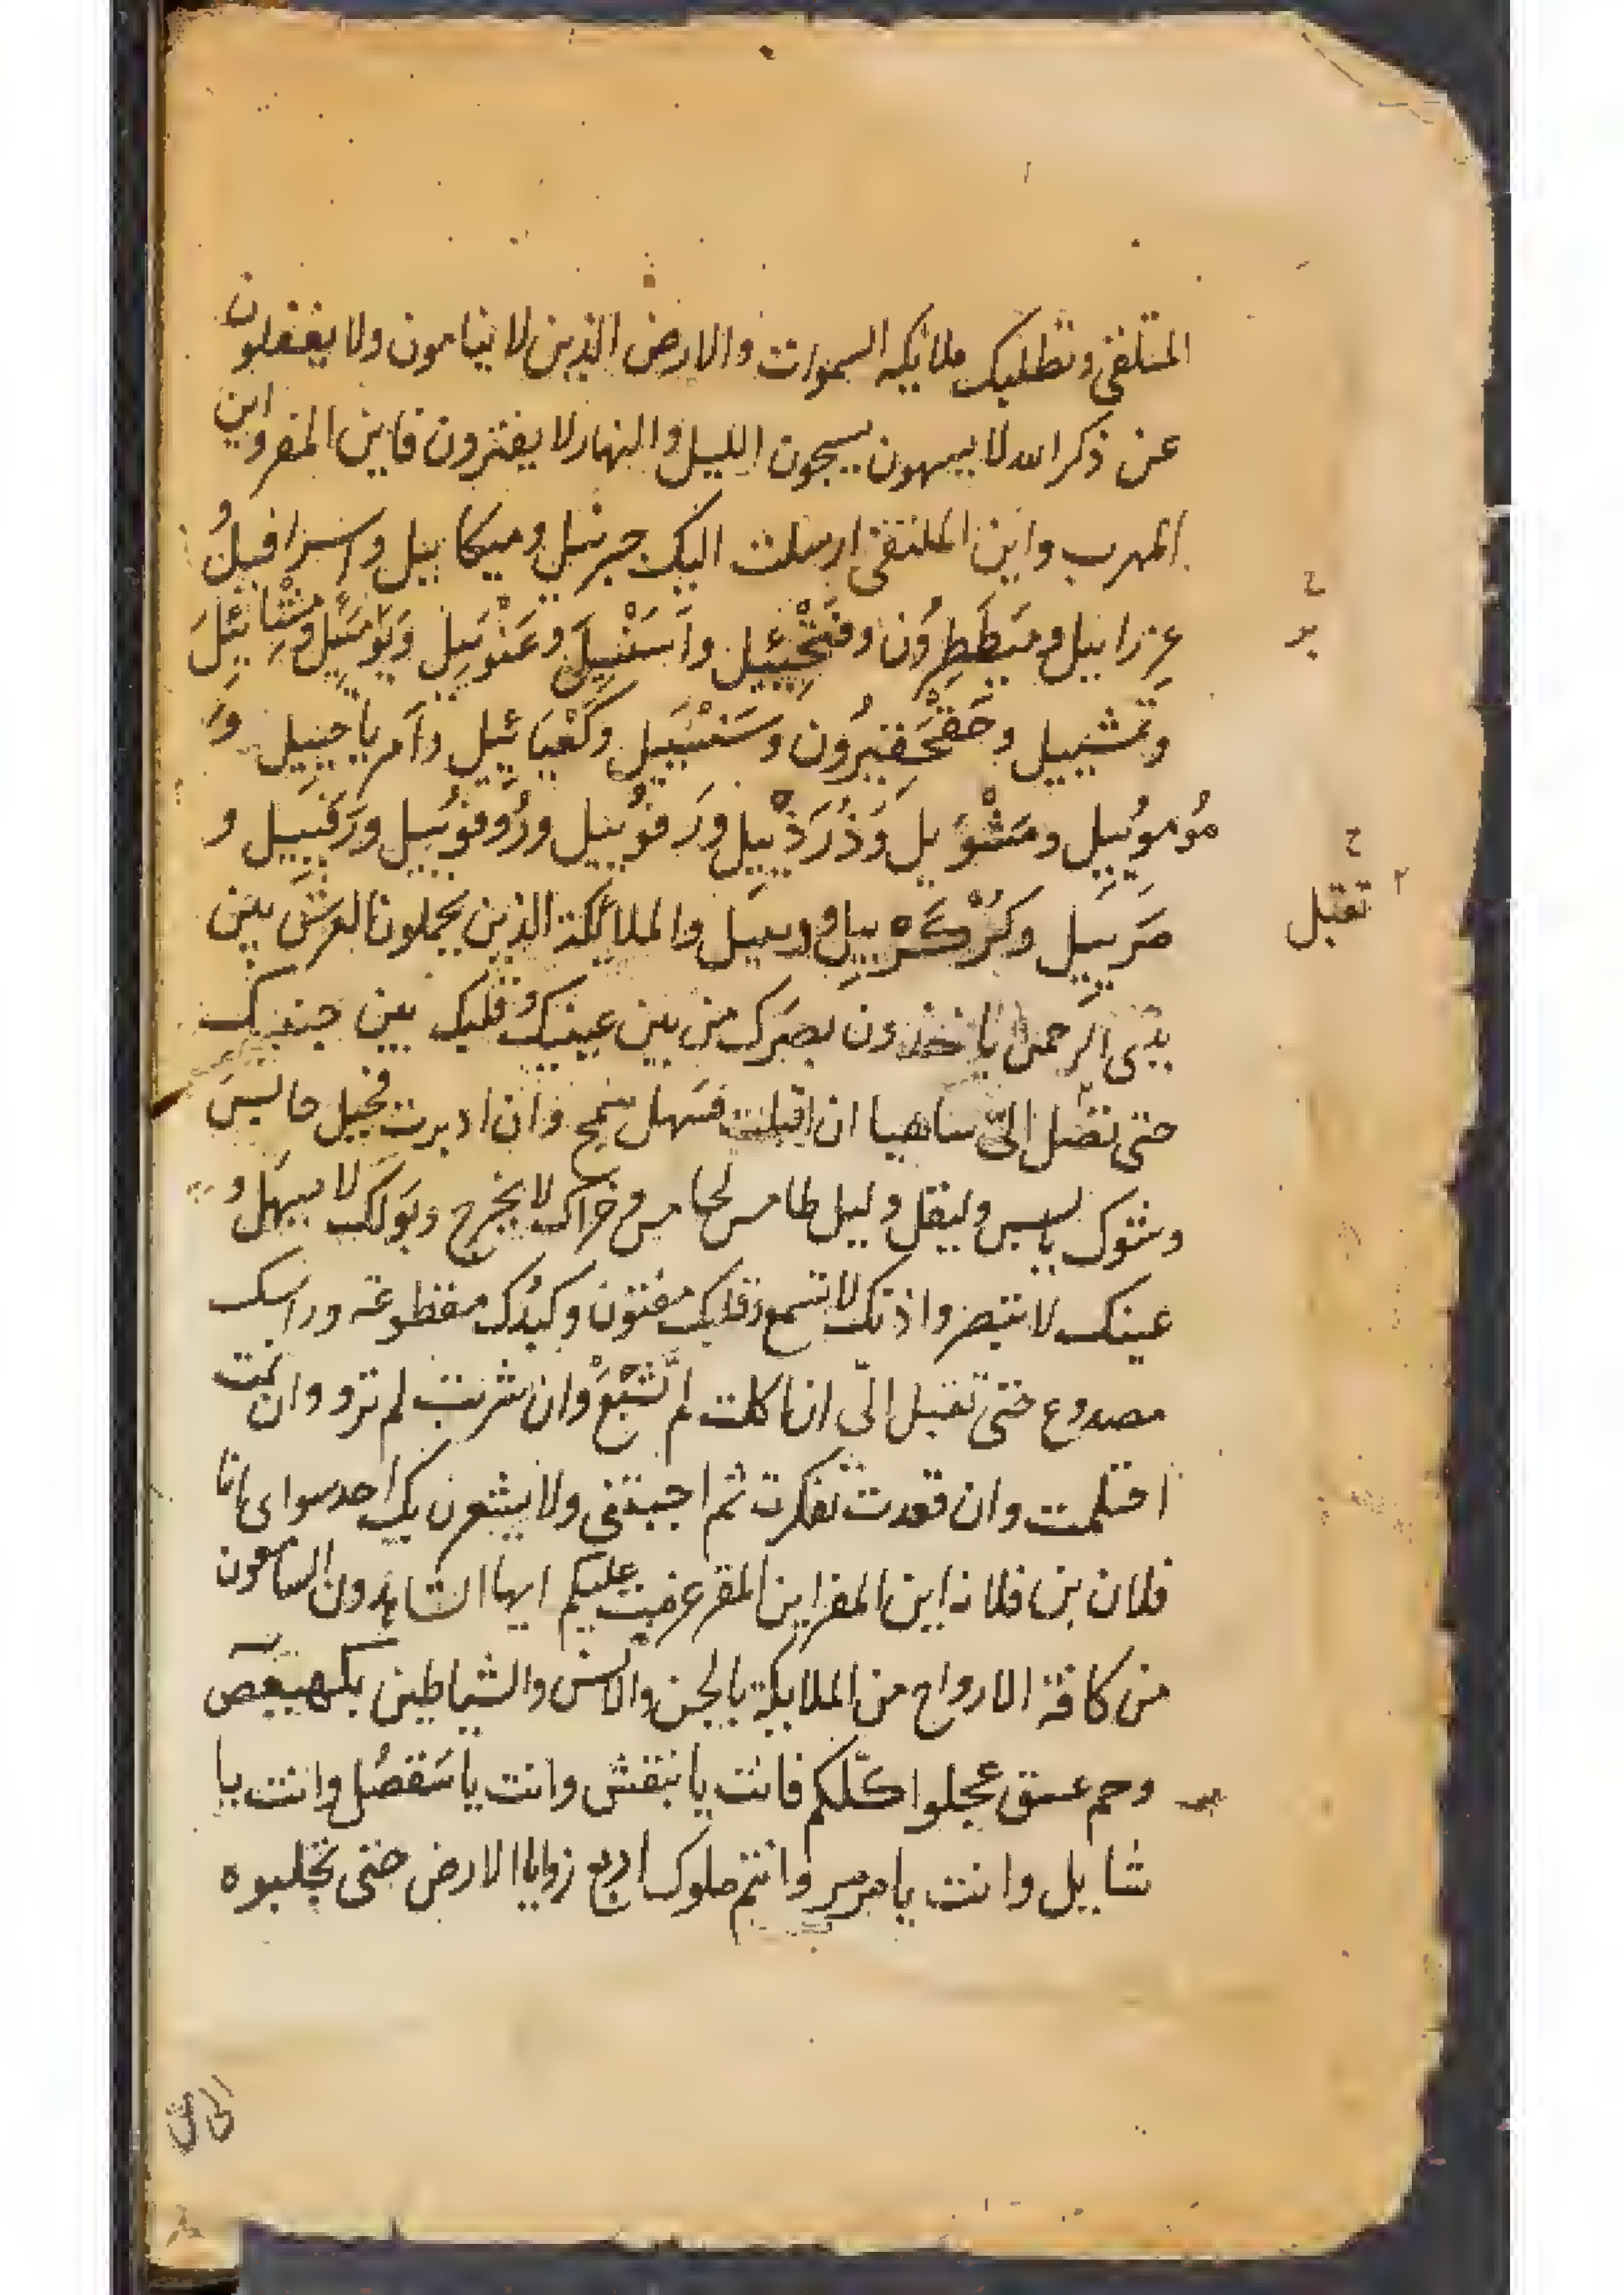 الملتقى ونطلبك ملايكه السموات والارض الذين لا ينامون ولا يغفلون
عن ذكر الله لا يسهون يسبحون الليل والنهار لا يفترون فاين المفر واين
المهرب واين الملتقى ارسلت اليك جبرئيل وميكاييل واسرافيل و
عزراييل وميططرون وفتحيئيل واسنييل وعنوييل ويوائيل
وتمشييل وكعيائييل وامرياحييل و
موموييل ومشويل وذرذييل ورفوييل وروفوييل ورفييل و
صرييل وكركرييل والملائكة الذين يحملون العرش بين
يدى الرحمن ياخذون بصرك من بين عينيك وقلبك بين جنبيك
حتى تصل الىّ ساهيا ان اقبلت فسهل سمح وان ادبرت فجبل حابس
وشوك يابس وليقل وليل طامس لحامس وخراك لا يخرج وبولك لا يسهل و
عينك لا تبصر واذنك لا تسمع وقلبك مفتون وكبدك مقطوعه وراسك
مصدوع حتى تقبل الىّ ان اكلت لم تشبع وان شربت لم ترو وان نمت
احتلمت وان قعدت تفكرت ثم اجبتنى ولا يشعرن بك احد سواى انا
فلان بن فلانه اين المفر اين المقر عزمت عليكم ايها الشاهدون السامعون
من كافة الارواح من الملايكة يالجن والانس والشياطين بكهيعص
وحم عسق عجلوا كلكم فانت يا نيقش وانت يا سقصل وانت يا
شاييل وانت يا مرمر وانتم ملوك اربع زوايا الارض حتى تجلبوه
ح
ح
٢
تقبل